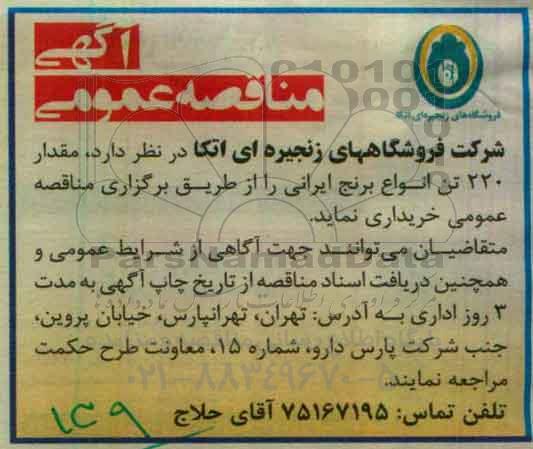 آگهی
مناقصه عمومی
فروشگاه‌های زنجیره‌ای اتکا
شرکت فروشگاههای زنجیره ای اتکا در نظر دارد، مقدار
۲۲۰ تن انواع برنج ایرانی را از طریق برگزاری مناقصه
عمومی خریداری نماید.
متقاضیان می‌توانند جهت آگاهی از شرایط عمومی و
همچنین دریافت اسناد مناقصه از تاریخ چاپ آگهی به مدت
۳ روز اداری به آدرس: تهران، تهرانپارس، خیابان پروین،
جنب شرکت پارس دارو، شماره ۱۵، معاونت طرح حکمت
مراجعه نمایند.
تلفن تماس: ۷۵۱۶۷۱۹۵ آقای حلاج
۱۳۹
ParsNamadData
۰۲۱-۸۸۳۴۹۶۷۰-۵